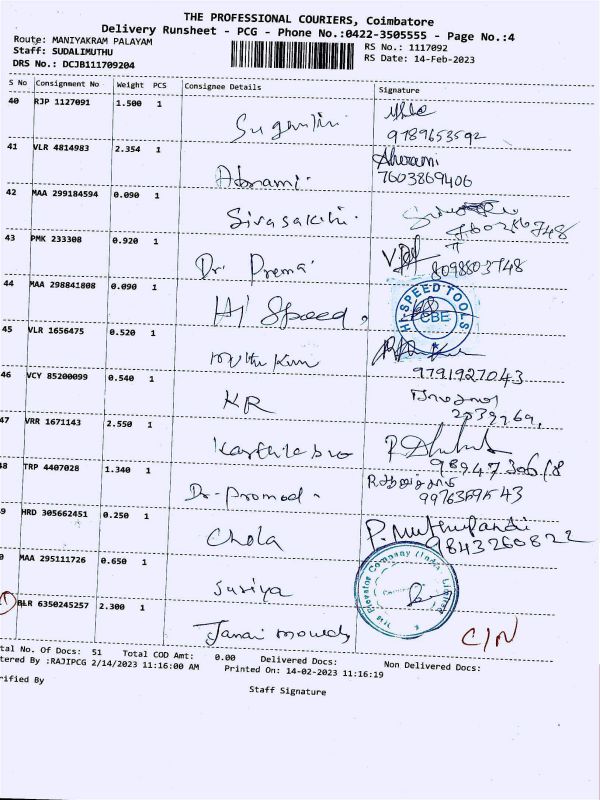 THE PROFESSIONAL COURIERS, Coimbatore
Delivery Runsheet - PCG - Phone No.:0422-3505555 - Page No.:4
Route: MANIYAKRAM PALAYAM
RS No.: 1117092
Staff: SUDALIMUTHU
RS Date: 14-Feb-2023
DRS No.: DCJB111709204
S No Consignment No Weight PCS Consignee Details Signature
40 RJP 1127091 1.500 1
9789653592
41 VLR 4814983 2.354 1 Abirami.
Abirami
7603869406
42 MAA 299184594 0.090 1 Sivasakthi.
43 PMK 233308 0.920 1 Dr. Prema
8098803748
44 MAA 298841808 0.090 1 Hi Speed.
HI-SPEED TOOLS
CBE
45 VLR 1656475 0.520 1
9791927043
46 VCY 85200099 0.540 1 KR
47 VRR 1671143 2.550 1
48 TRP 4407028 1.340 1 Dr-Promod.
49 HRD 305662451 0.250 1 Chola
P. Muthupandi
9843260822
0 MAA 295111726 0.650 1 Suriya
Elevator Company (India) Limited
BLR 6350245257 2.300 1 Janai moulds
C/N
tal No. Of Docs: 51 Total COD Amt: 0.00 Delivered Docs: Non Delivered Docs:
tered By :RAJIPCG 2/14/2023 11:16:00 AM Printed On: 14-02-2023 11:16:19
rified By
Staff Signature